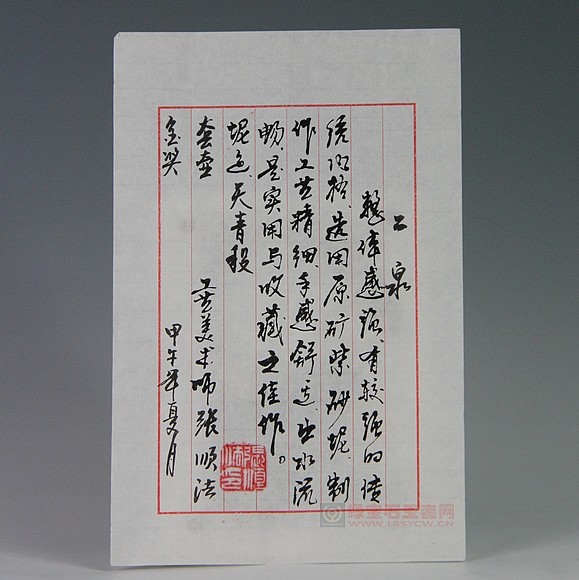 二泉
整体感强、有较强的传
统风格、选用原矿紫砂坭、制
作工艺精细、手感舒适、出水流
畅、是实用与收藏之佳作。
坭色、天青段
套壶 工艺美术师张顺法
金奖 甲午年夏月
WWW.LBSYCW.CN